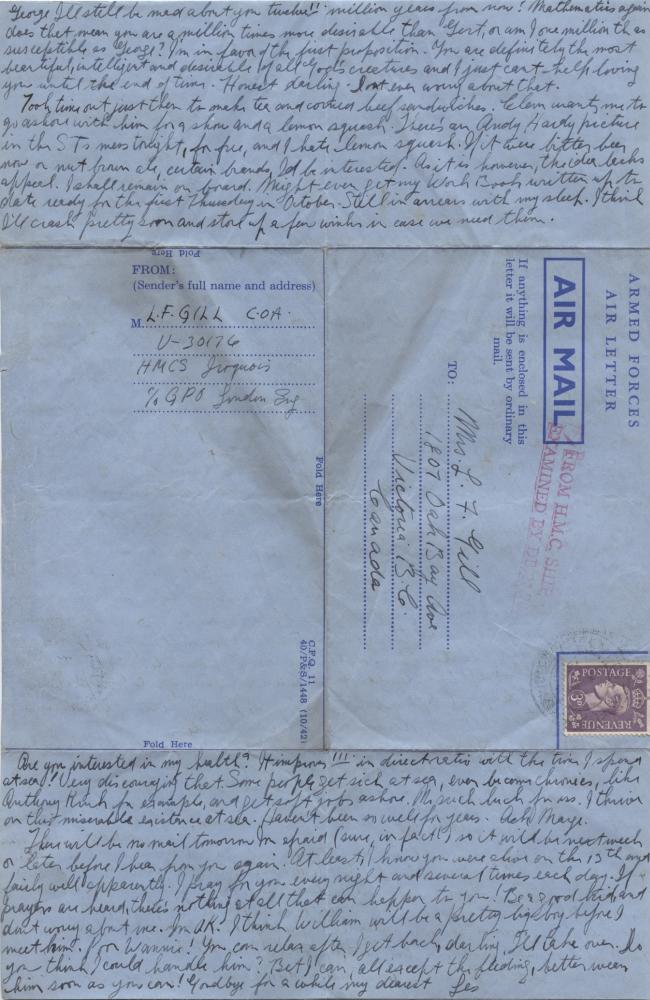 George I'll still be mad about you twelve!! million years from now! Mathematics again
does that mean you are a million times more desirable than Gert, or am I one millionth as
susceptible as George? I'm in favor of the first proposition. You are definitely the most
beautiful, intelligent and desirable of all God's creatures and I just can't help loving
you until the end of time. Honest darling. Don't ever worry about that.
Took time out just then to make tea and corned beef sandwiches. Clem wants me to
go ashore with him for a show and a lemon squash. There's an Andy Hardy picture
in the STs mess tonight, for free, and I hate lemon squash. If it were bitter beer
now or nut brown ale, certain brands, I'd be interested. As it is however, the idea lacks
appeal. I shall remain on board. Might even get my Work Book written up to
date ready for the first Thursday in October. Still in arrears with my sleep. I think
I'll crash pretty soon and store up a few winks in case we need them.
Fold Here
FROM:
(Sender's full name and address)
M. L.F. GILL COA.
V-30176
HMCS Iroquois
c/o GPO London Eng
Fold Here
C.F.Q. 11
40/P&S/1448 (10/42)
Fold Here
ARMED FORCES
AIR LETTER
AIR MAIL
If anything is enclosed in this
letter it will be sent by ordinary
mail.
FROM H.M.C. SHIP
EXAMINED BY
TO:
Mrs. L. F. Gill
1807 Oak Bay Ave
Victoria B.C.
Canada
POSTAGE
3D
REVENUE
Are you interested in my health? It improves!!! in direct ratio with the time I spend
at sea! Very discouraging that. Some people get sick at sea, even become chronics, like
Anthony for example, and get soft jobs ashore. No such luck for me. I thrive
on this miserable existence at sea. Haven't been so well for years. Ack Marge.
There will be no mail tomorrow I'm afraid (sure, in fact!) so it will be next week
or later before I hear from you again. At least I know you were alive on the 13th and
fairly well apparently. I pray for you every night and several times each day. If
prayers are heard, there's nothing at all that can happen to you! Be a good kid and
don't worry about me. I'm OK! I think William will be a pretty big boy before I
meet him. Poor Wannie! You can relax after I get back, darling, I'll take over. Do
you think I could handle him? Bet I can, all except the feeding, better wean
him soon as you can! Goodbye for a while my dearest Les